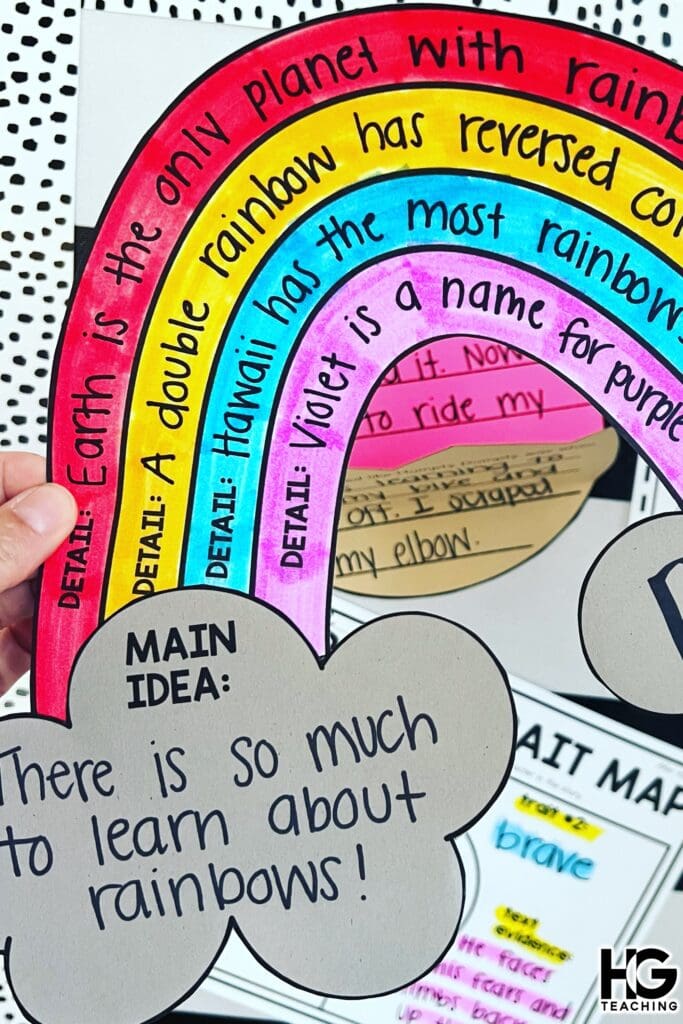 DETAIL: Earth is the only planet with
DETAIL: A double rainbow has reversed
DETAIL: Hawaii has the most rainbows
DETAIL: Violet is a name for purple
it. Now
to ride my
bike and
off. I scraped
my elbow.
MAIN
IDEA:
There is so much
to learn about
rainbows!
AIT MAP
trait #2:
brave
text
evidence:
He faces
his fears and
climbs back
up
HG
TEACHING